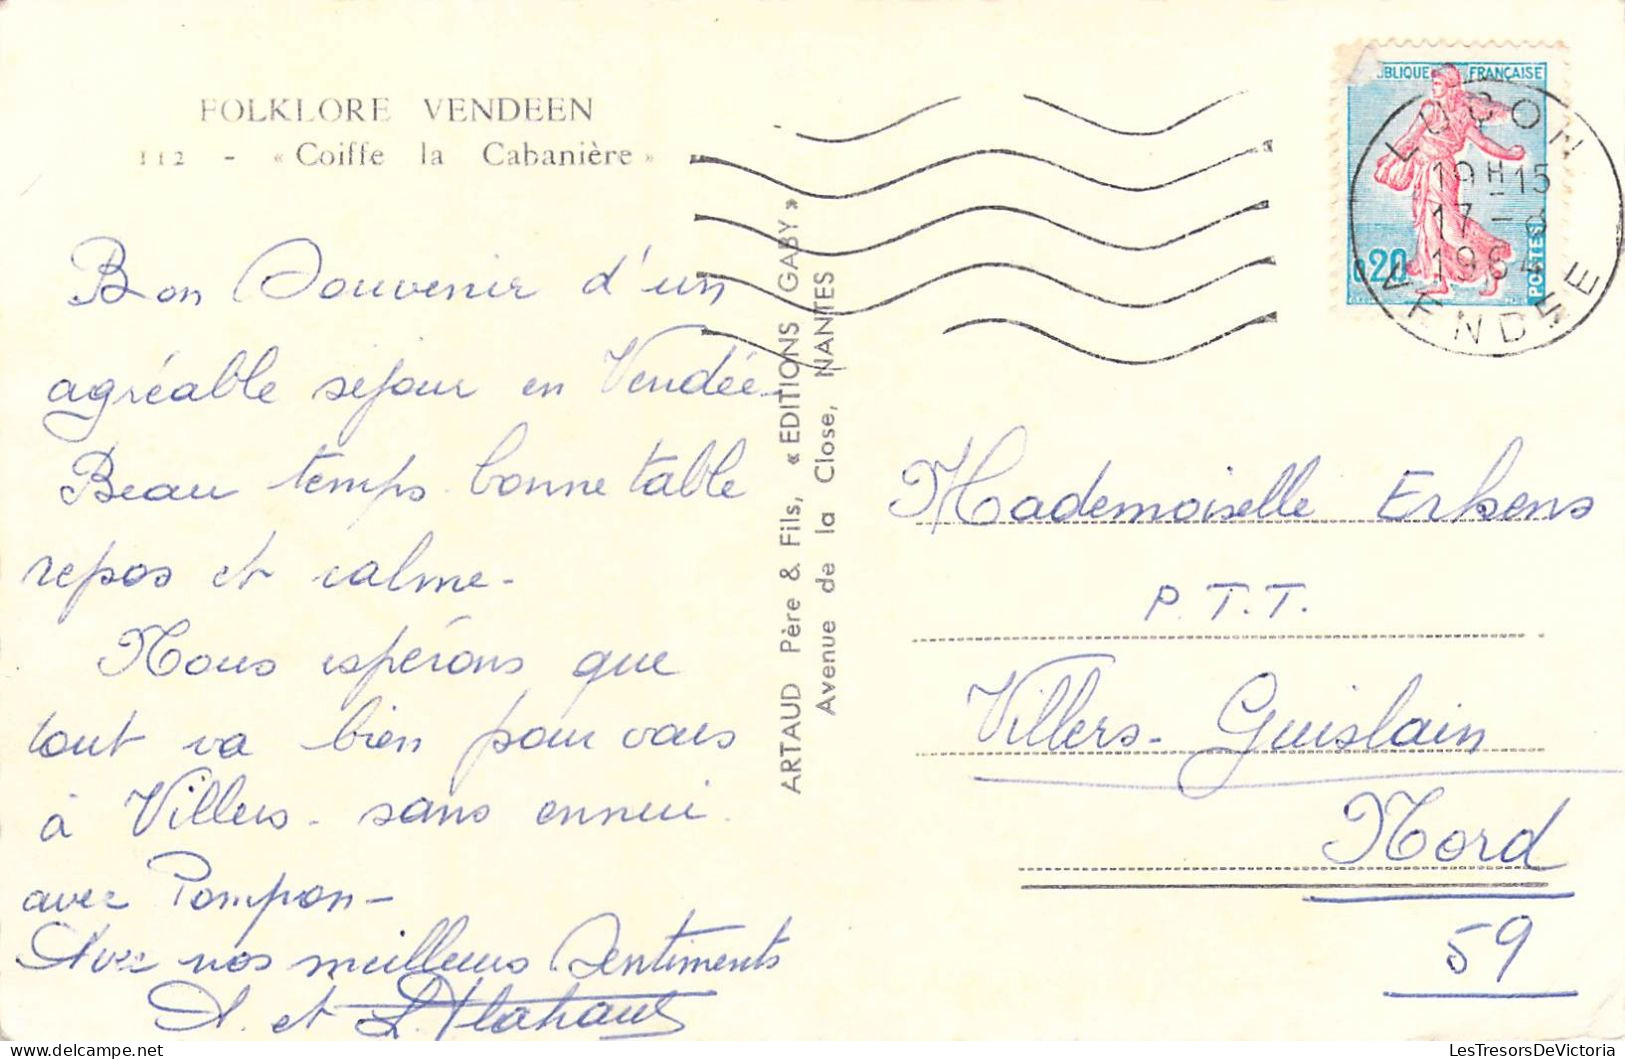 FOLKLORE VENDEEN
112 - « Coiffe la Cabanière »
Bon Souvenir d'un
agréable séjour en Vendée -
Beau temps bonne table
repos et calme -
Nous espérons que
tout va bien pour vous
à Villers - sans ennui
avec Pompon -
Avec nos meilleurs sentiments
A. et L. Flahaut
ARTAUD Père & Fils, « EDITIONS GABY »
Avenue de la Close, NANTES
RÉPUBLIQUE FRANÇAISE
0.20
POSTES
LUÇON
19H-15
17-8
1964
VENDEE
Mademoiselle Erkens
P.T.T.
Villers-Guislain
Nord
59
LesTresorsDeVictoria